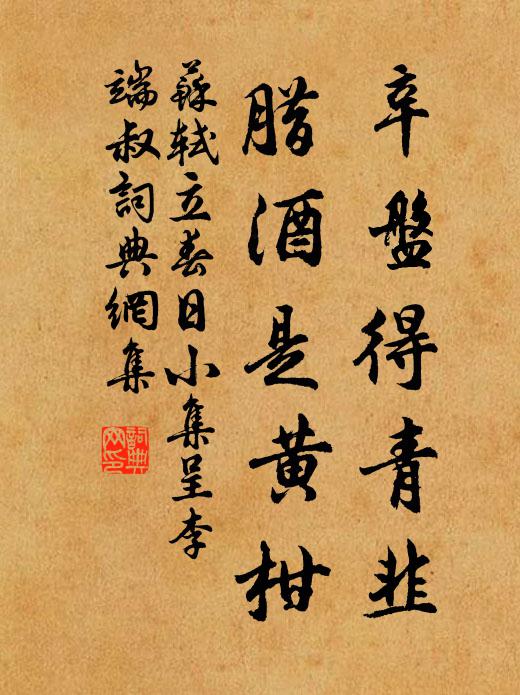 辛盤得青韭
腊酒是黄柑
蘇軾立春日小集呈李
端叔詞典網集
詞典
网印